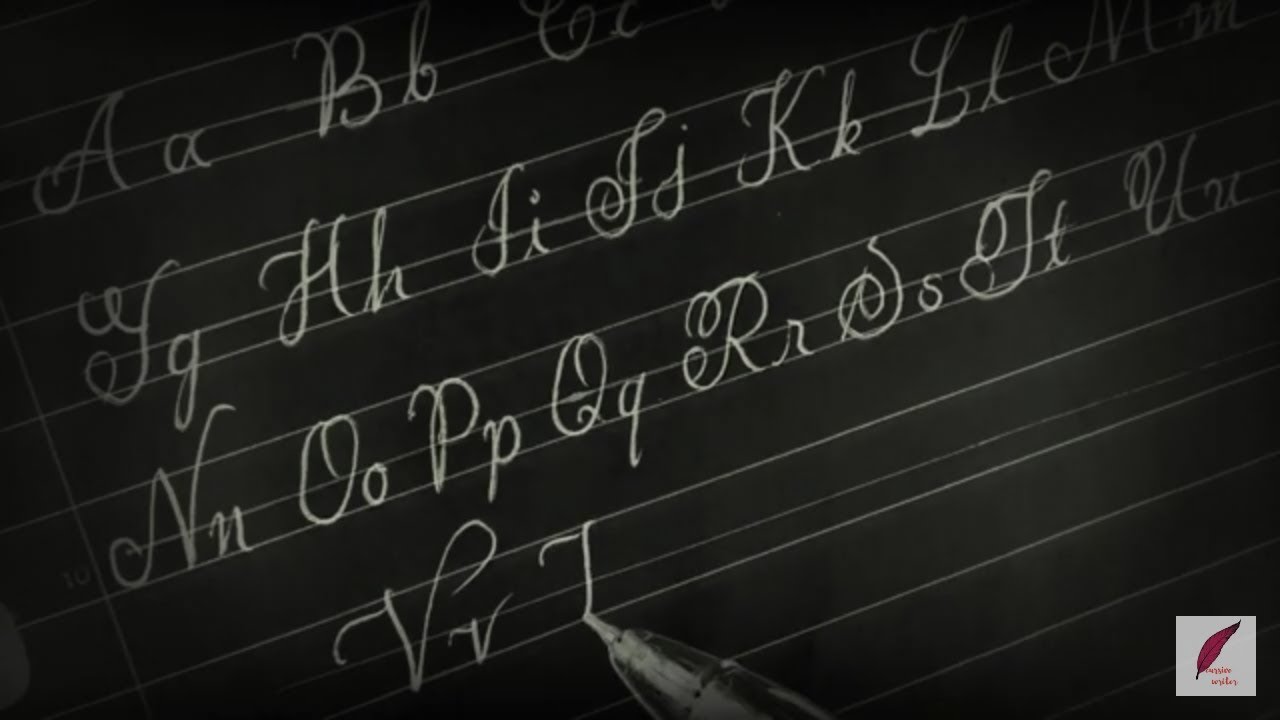 Aa Bb Cc
Gg Hh Ii Jj Kk Ll Mm
Nn Oo Pp Qq Rr Ss Tt Uu
Vv
cursive
writer